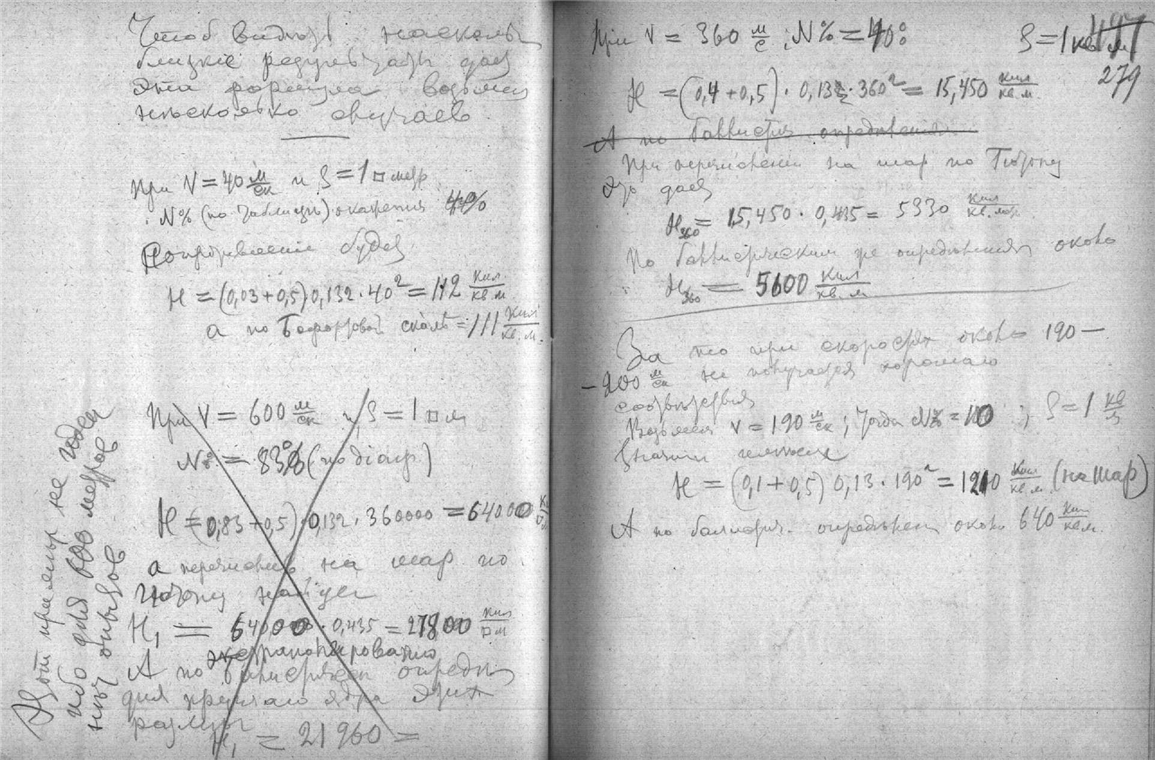 Чтоб видѣть насколько
близкіе результаты даетъ
эта формула возьмемъ
нѣсколько случаевъ.
При V = 40 м/сек и S = 1 □ метр.
N% (по таблицѣ) окажется 4%
Сопротивленіе будетъ
H = (0,03 + 0,5) 0,132 · 40² = 112 Кил/кв. м
а по = 111 Кил/кв. м.
При V = 600 м/сек и S = 1 □ м
N% = 83% (по діагр.)
H = (0,83 + 0,5) · 0,132 · 360000 = 64000
а перечисливъ на шар по
Ньютону найдем
H₁ = 64000 · 0,435 = 27800 Кил/□ м
экстраполировано
А по опредѣл
для круглаго ядра
H₁ = 21960 =
Этот примѣр не годен
ибо для 600 метров
нѣт опытов
497
279
При V = 360 м/с ; N% = 40% S = 1 кв. м
H = (0,4 + 0,5) · 0,132 · 360² = 15,450 Кил/кв. м.
А по баллистич. опредѣленію
При перечисленіи на шар по Ньютону
это дает
H₃₆₀ = 15,450 · 0,435 = 5330
По баллистическим же опредѣленіям около
H₃₆₀ = 5600 Кил/кв. м
За то при скоростях около 190 —
– 200 м/сек не получается хорошаго
соотвѣтствія
Возьмем V = 190 м/сек ; тогда N% = 10 ; S = 1 кв м
H = (0,1 + 0,5) 0,13 · 190² = 1210 Кил/кв. м (на шар)
А по баллистич. опредѣлен. около 640 Кил/кв м.